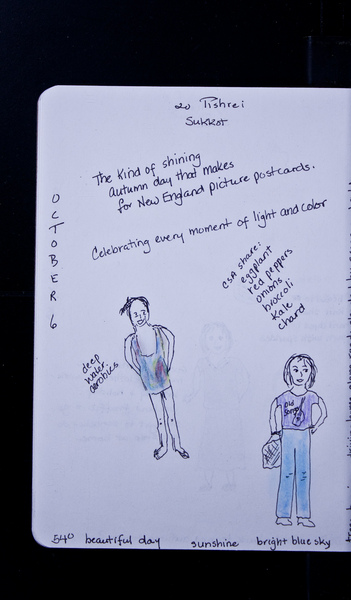 20 Tishrei
Sukkot
The kind of shining
autumn day that makes
for New England picture postcards.
Celebrating every moment of light and color
OCTOBER 6
CSA share:
eggplant
red peppers
onions
broccoli
Kale
chard
deep
water
aerobics
Old
Songs
54° beautiful day sunshine bright blue sky